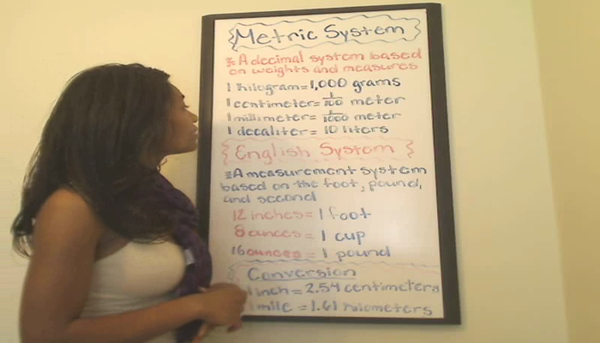 Metric System
A decimal system based
on weights and measures
1 kilogram = 1,000 grams
1 centimeter = 1/100 meter
1 millimeter = 1/1000 meter
1 decaliter = 10 liters
English System
A measurement system
based on the foot, pound,
and second
12 inches = 1 foot
8 ounces = 1 cup
16 ounces = 1 pound
Conversion
1 inch = 2.54 centimeters
1 mile = 1.61 kilometers